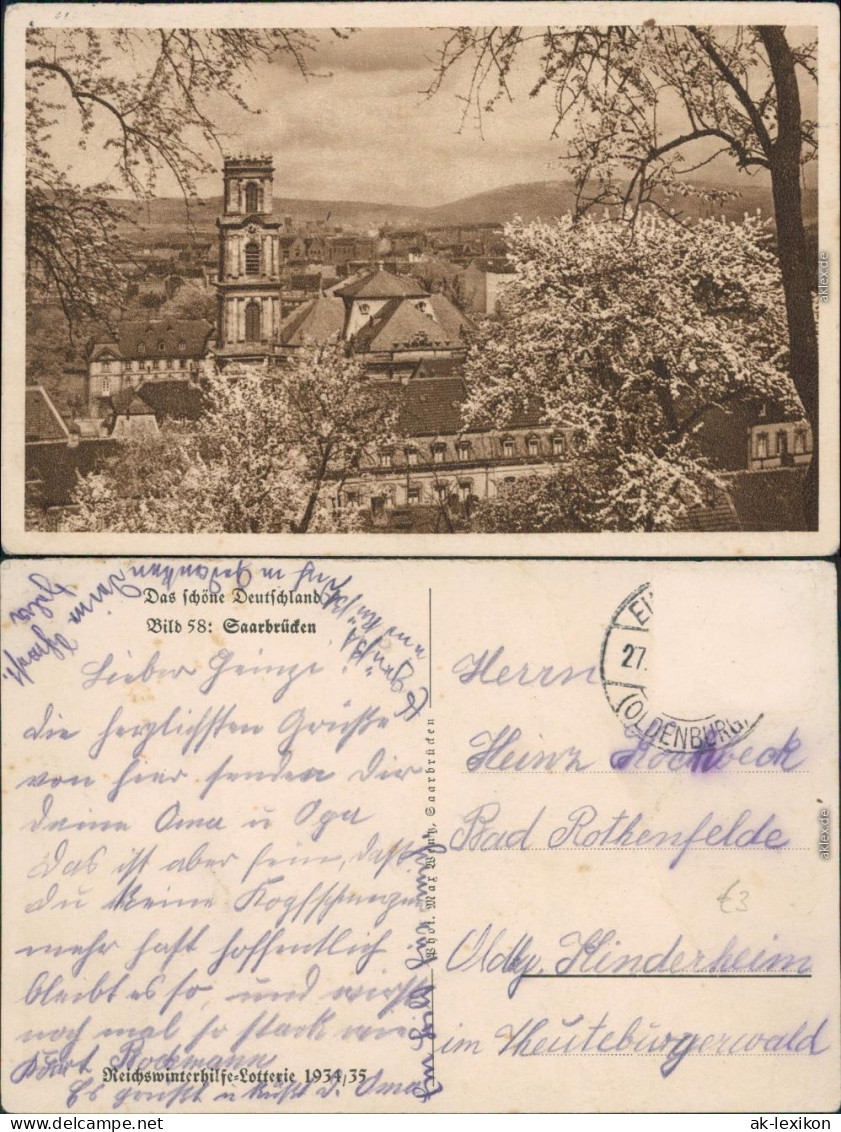 Das schöne Deutschland
Bild 58: Saarbrücken
Lieber Heinzi!
die herzlichsten Grüße
von hier senden Dir
deine Oma u Opa
Das ist aber fein, daß
du keine Kopfschmerzen
mehr hast hoffentlich
bleibt es so, und wirst
noch mal so stark wie
Reichswinterhilfe-Lotterie 1934/35
Es grüßt u küßt D. Oma
Phot. Max Wentz, Saarbrücken
27.
(OLDENBURG)
Herrn
Heinz
Bad Rothenfelde
Oldbg. Kinderheim
im Theuteburgerwald
€3
aklex.de
aklex.de
ak-lexikon